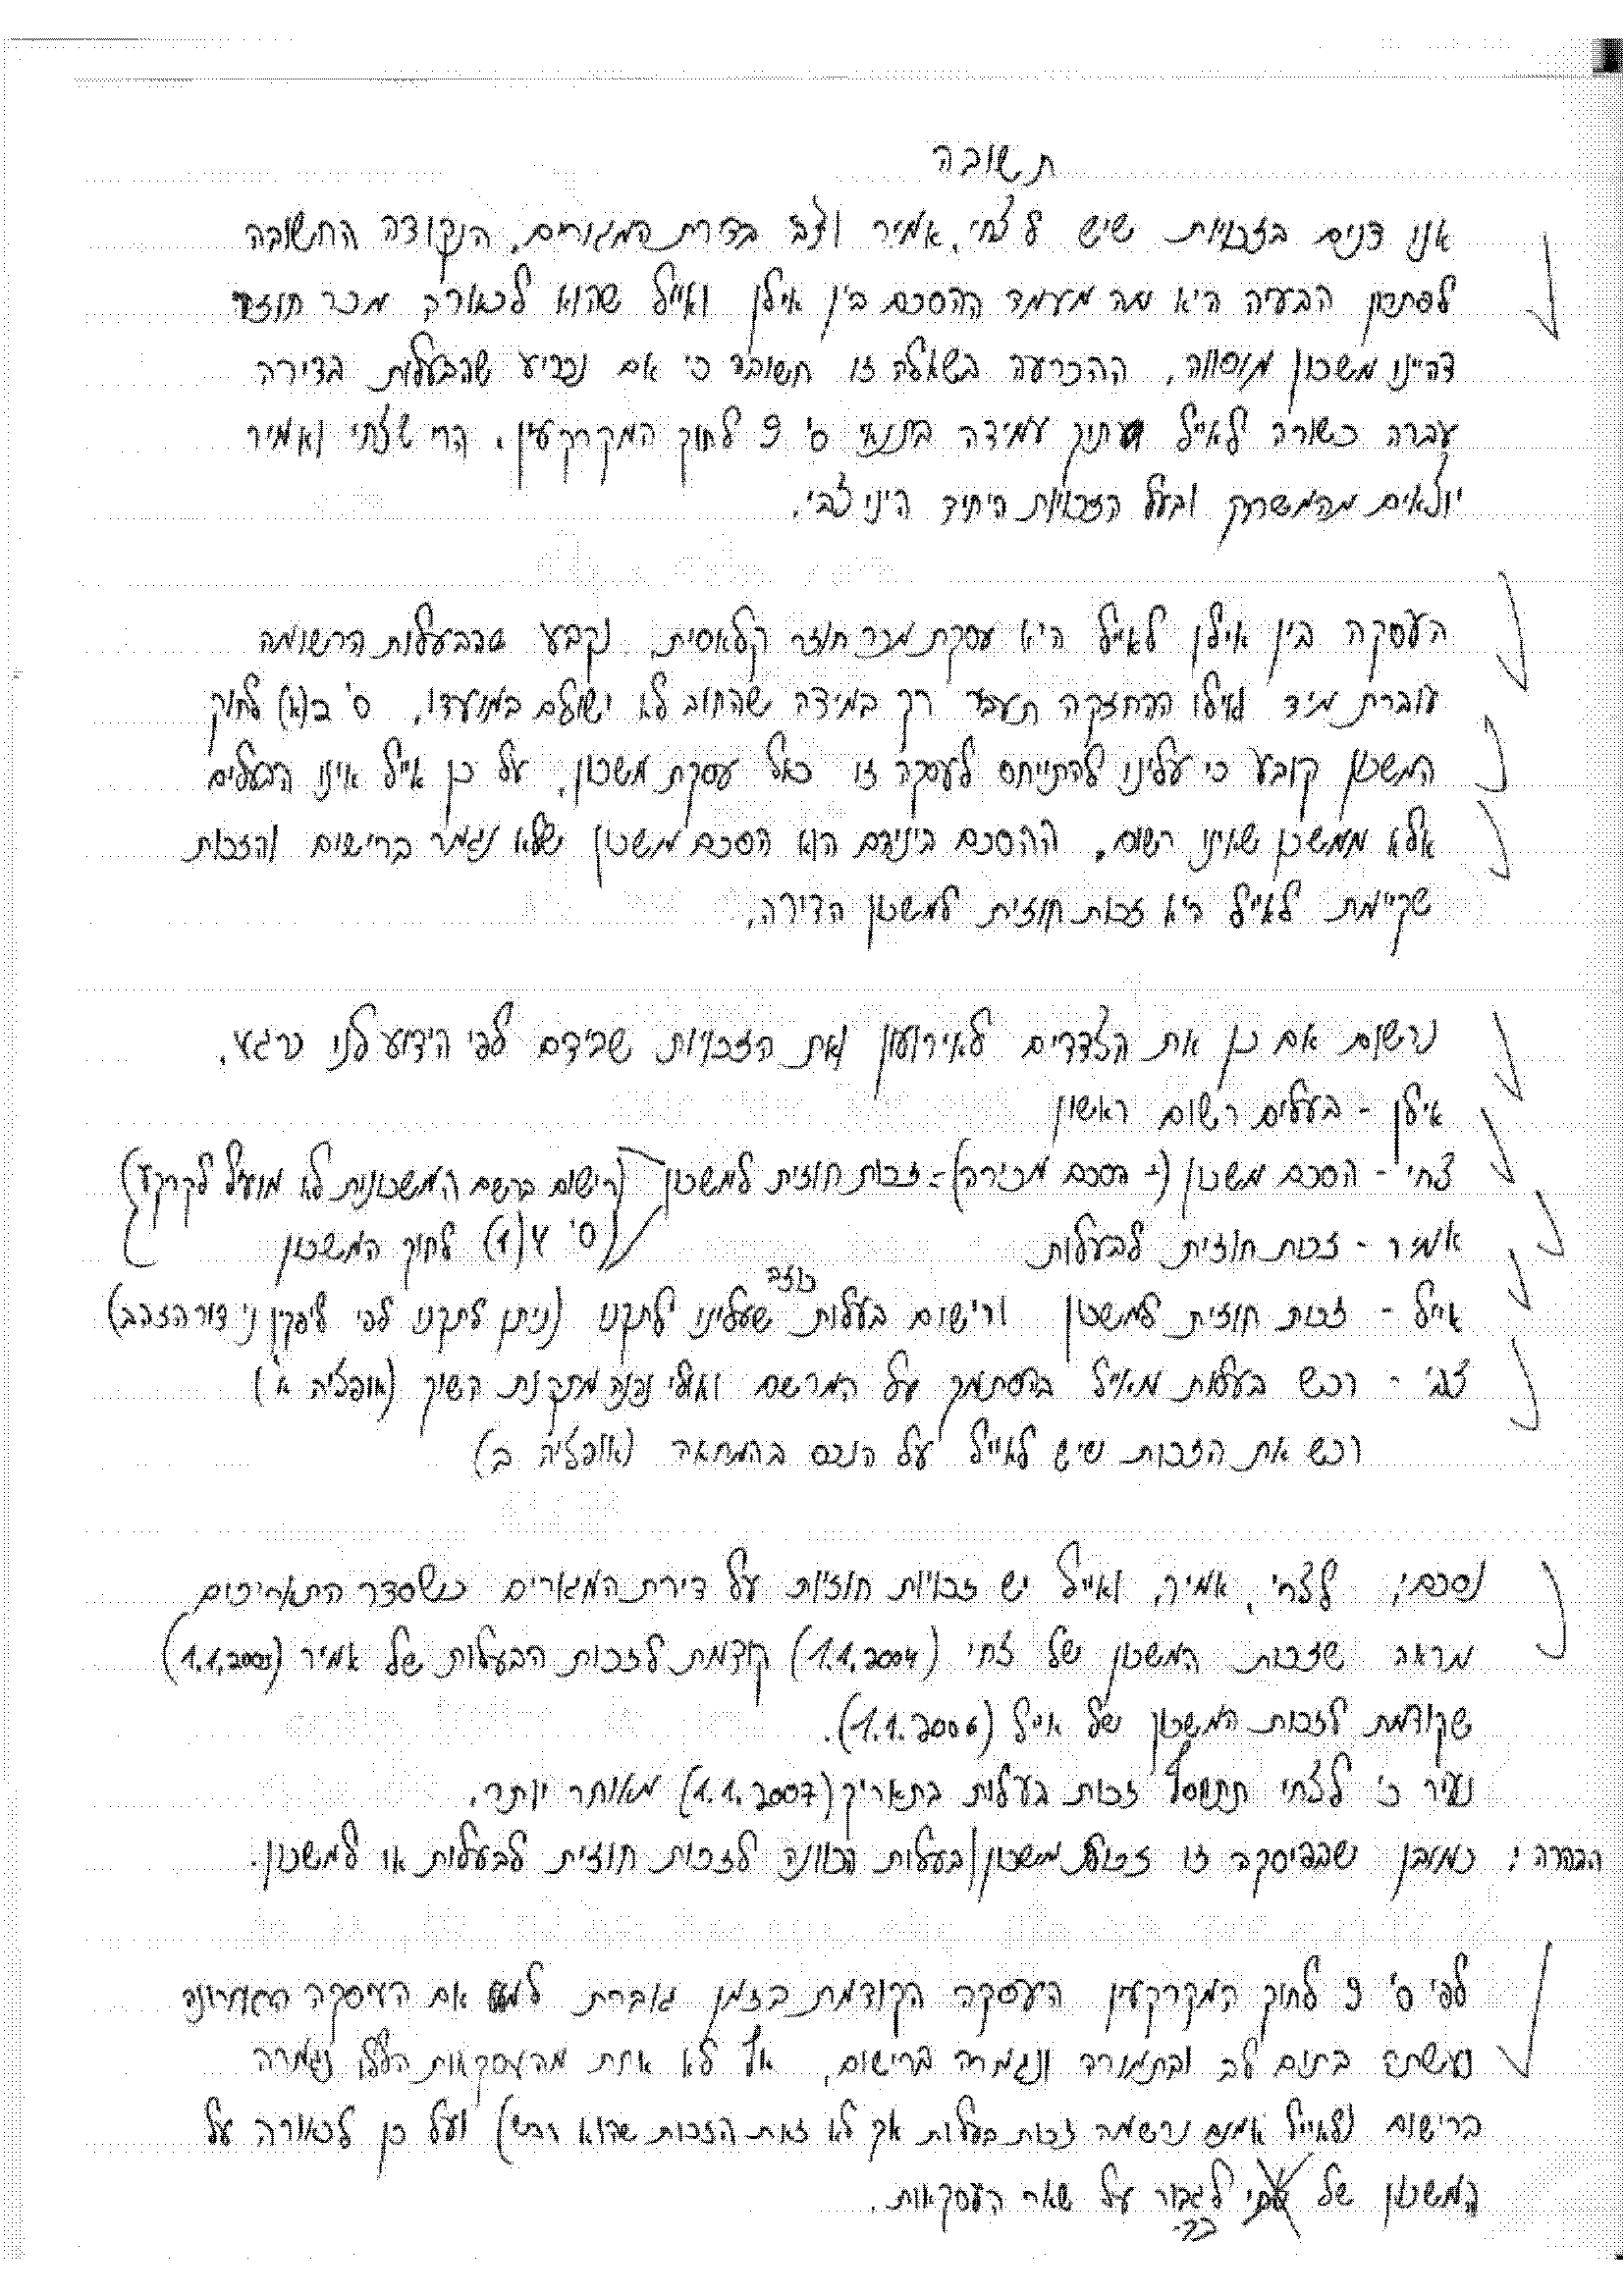 תשובה
אנו דנים בזכויות שיש לצחי, אמיר וצבי בדירת המגורים. הנקודה החשובה
לפתרון הבעיה היא מה מעמד ההסכם בין אילן ואייל שהוא לכאורה מכר חוזר
דהיינו משכון מוסווה. ההכרעה בשאלה זו חשובה כי אם נכריע שהבעלות בדירה
עברה כשורה לאייל תוך עמידה בתנאי ס' 9 לחוק המקרקעין. הרי שצחי ואמיר
יוצאים מהמשחק ובעל הזכויות היחיד הינו צבי.
העסקה בין אילן לאייל היא עסקת מכר חוזר קלאסית. נקבע שהבעלות הרשומה
עוברת מיד ואילו ההחזקה תעבור רק במידה שהחוב לא ישולם במועדו. ס' 2(א) לחוק
המשכון קובע כי עלינו להתייחס לעסקה זו כאל עסקת משכון. על כן אייל אינו הבעלים
אלא ממשכן שאינו רשום. ההסכם ביניהם הוא הסכם משכון שלא נגמר ברישום והזכות
שקיימת לאייל היא זכות חוזית למשכון הדירה.
נרשום אם כן את הצדדים לאירועון ואת הזכויות שבידם לפי הידוע לנו כרגע.
אילן - בעלים רשום ראשון
צחי - הסכם משכון (+ הסכם מכירה) = זכות חוזית למשכון (רישום ברשם המשכונות לא מועיל לקרקע)
(ס' 4(1) לחוק המשכון
אמיר - זכות חוזית לבעלות
אייל - זכות חוזית למשכון ורישום בעלות כוזב שעלינו לתקנו (ניתן לתקנו לפי ליפקין נ' דור הזהב)
צבי - רכש בעלות מאייל בהסתמך על המרשם ואולי נהנה מתקנת השוק (אופציה א')
רכש את הזכות שיש לאייל על הנכס בהמחאה (אופציה ב)
נסכם: לצחי, אמיר, ואייל יש זכויות חוזיות על דירת המגורים כשסדר התאריכים
מראה שזכות המשכון של צחי (1.1.2004) קודמת לזכות הבעלות של אמיר (1.1.2005)
שקודמת לזכות המשכון של אייל (1.1.2006).
נעיר כי לצחי זכות בעלות בתאריך (1.1.2007) מאוחר יותר.
הבהרה: כמובן שבפיסקה זו זכות משכון/בעלות הכוונה לזכות חוזית לבעלות או למשכון.
לפי ס' 9 לחוק המקרקעין העסקה הקודמת בזמן גוברת אם העיסקה האחרונה
נעשתה בתום לב ובתמורה ונגמרה ברישום. אך לא אחת מהעסקאות הללו נגמרה
ברישום (לאייל אמנם נרשמה זכות בעלות אך לא זאת הזכות שהוא רכש) ועל כן לכאורה על
המשכון של לגבור על שאר העסקאות.